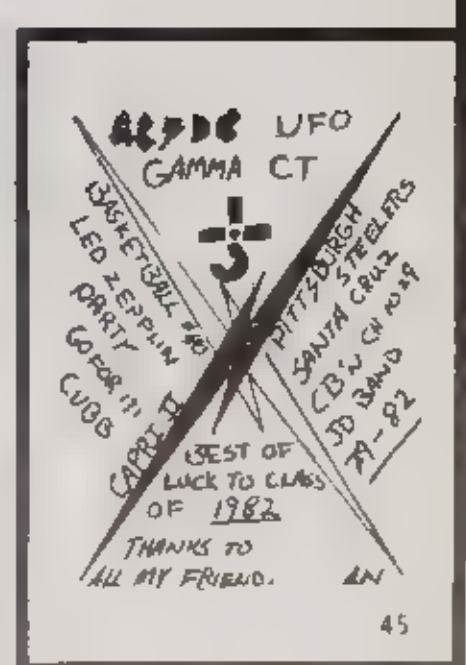 AC/DC UFO
GAMMA CT
BASKETBALL #40
LED ZEPPLIN
PARTY
GO FOR IT!
CUBB
CAPRI II
PITTSBURGH
STEELERS
SANTA CRUZ
CB'N CH 1029
JD BAND
79-82
BEST OF
LUCK TO CLASS
OF 1982
THANKS TO
ALL MY FRIEND.
45